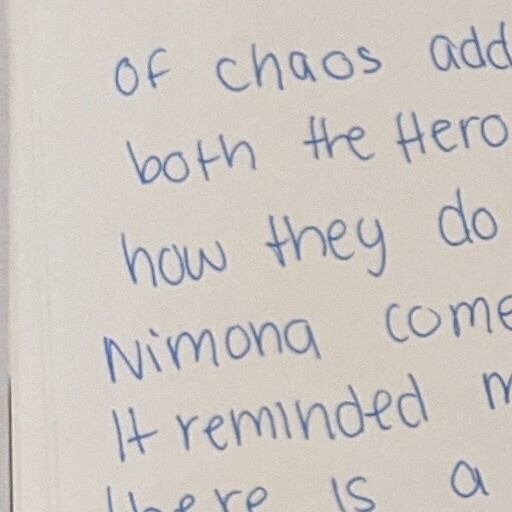 of chaos add
both the Hero
how they do
Nimona come
It reminded m
there is a